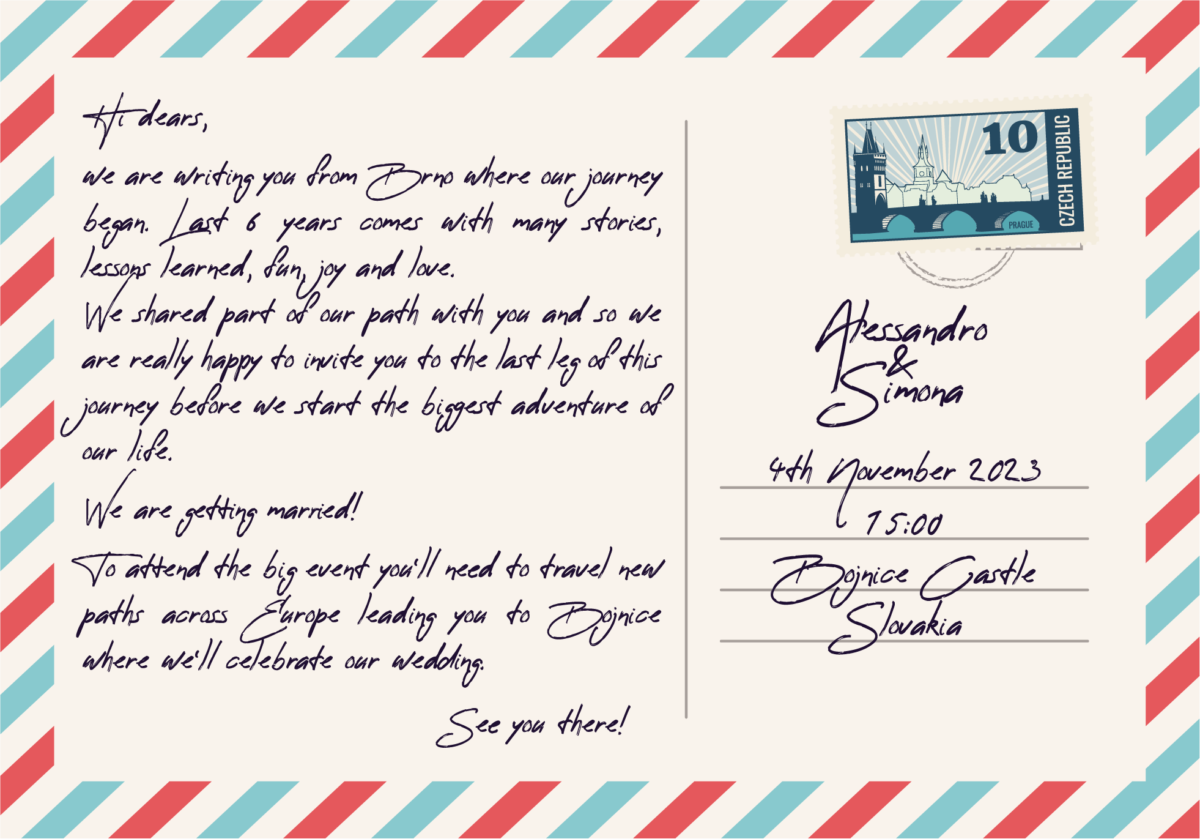 Hi dears,
we are writing you from Brno where our journey
began. Last 6 years comes with many stories,
lessons learned, fun, joy and love.
We shared part of our path with you and so we
are really happy to invite you to the last leg of this
journey before we start the biggest adventure of
our life.
We are getting married!
To attend the big event you'll need to travel new
paths across Europe leading you to Bojnice
where we'll celebrate our wedding.
See you there!
10
CZECH REPUBLIC
PRAGUE
Alessandro
&
Simona
4th November 2023
15:00
Bojnice Castle
Slovakia